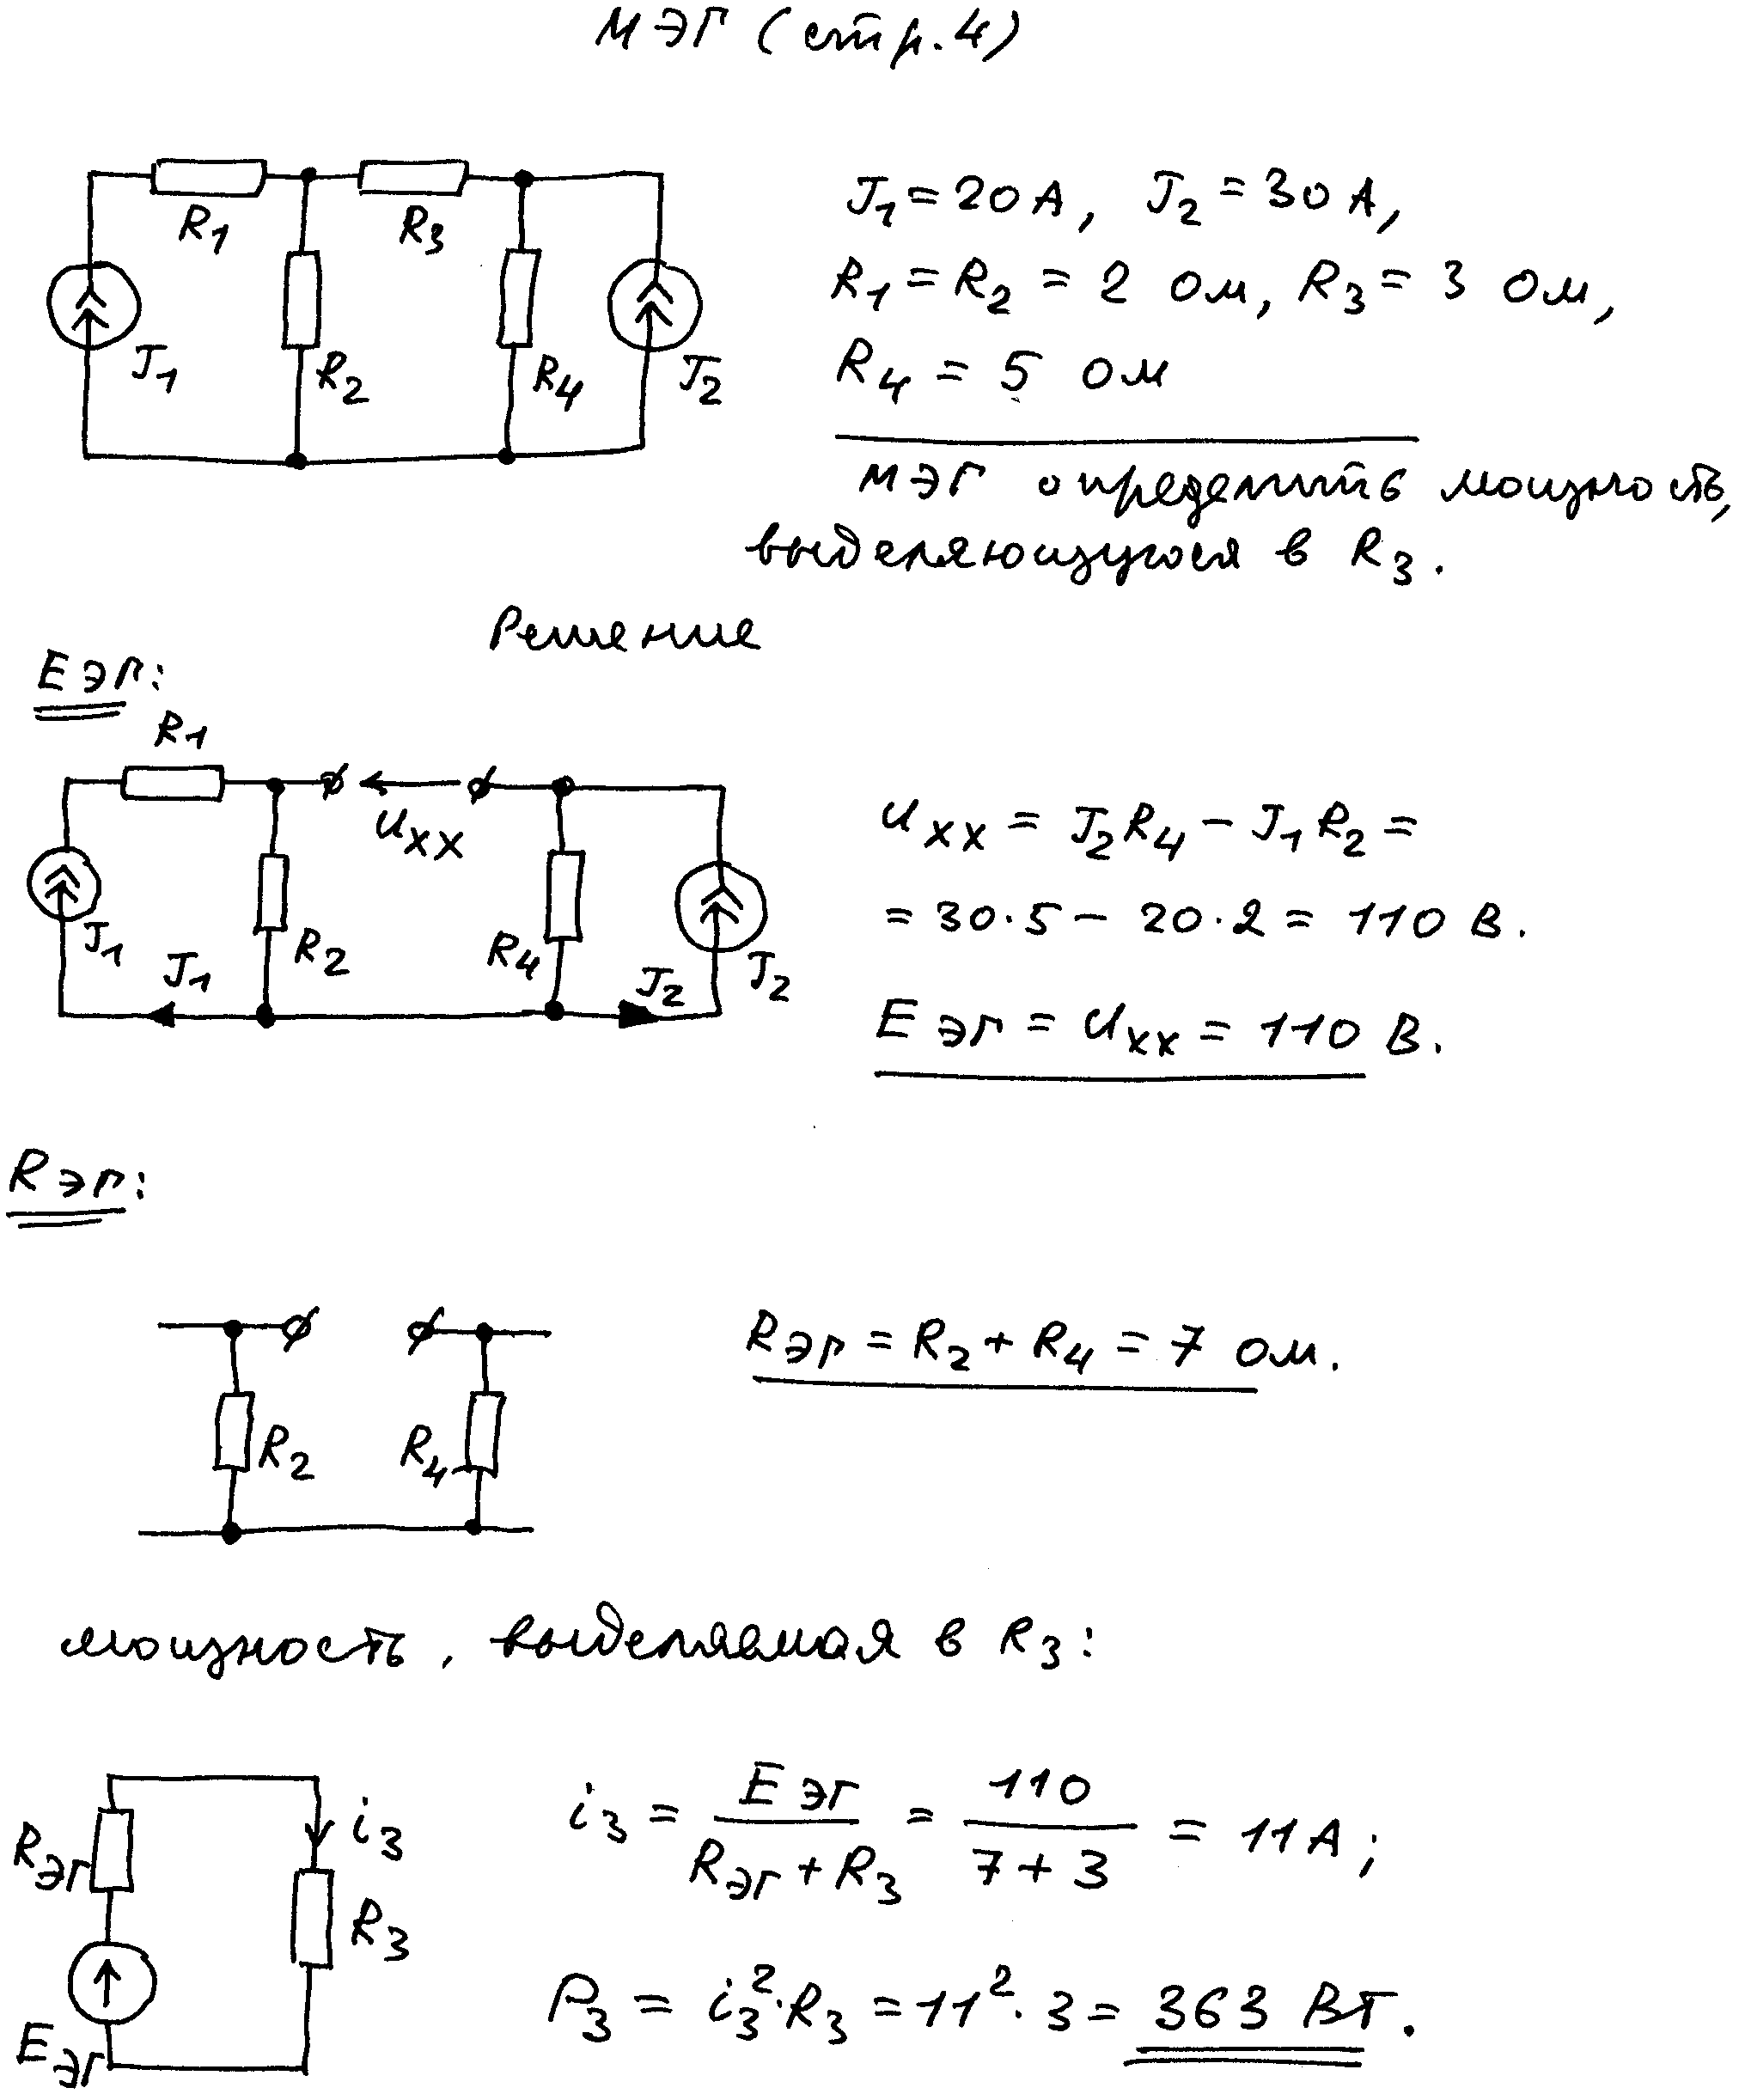 МЭГ (стр. 4)
R1 R3
J1 R2 R4 J2
J1 = 20 А, J2 = 30 А,
R1 = R2 = 2 Ом, R3 = 3 Ом,
R4 = 5 Ом
МЭГ определить мощность,
выделяющуюся в R3.
Решение
Eэг:
R1
Uxx
J1 J1 R2 R4 J2 J2
Uxx = J2R4 - J1R2 =
= 30·5 - 20·2 = 110 В.
Eэг = Uxx = 110 В.
Rэг:
R2 R4
Rэг = R2 + R4 = 7 Ом.
мощность, выделяемая в R3:
Rэг i3
R3
Eэг
i3 = Eэг / (Rэг + R3) = 110 / (7 + 3) = 11 А;
P3 = i3²·R3 = 11²·3 = 363 Вт.